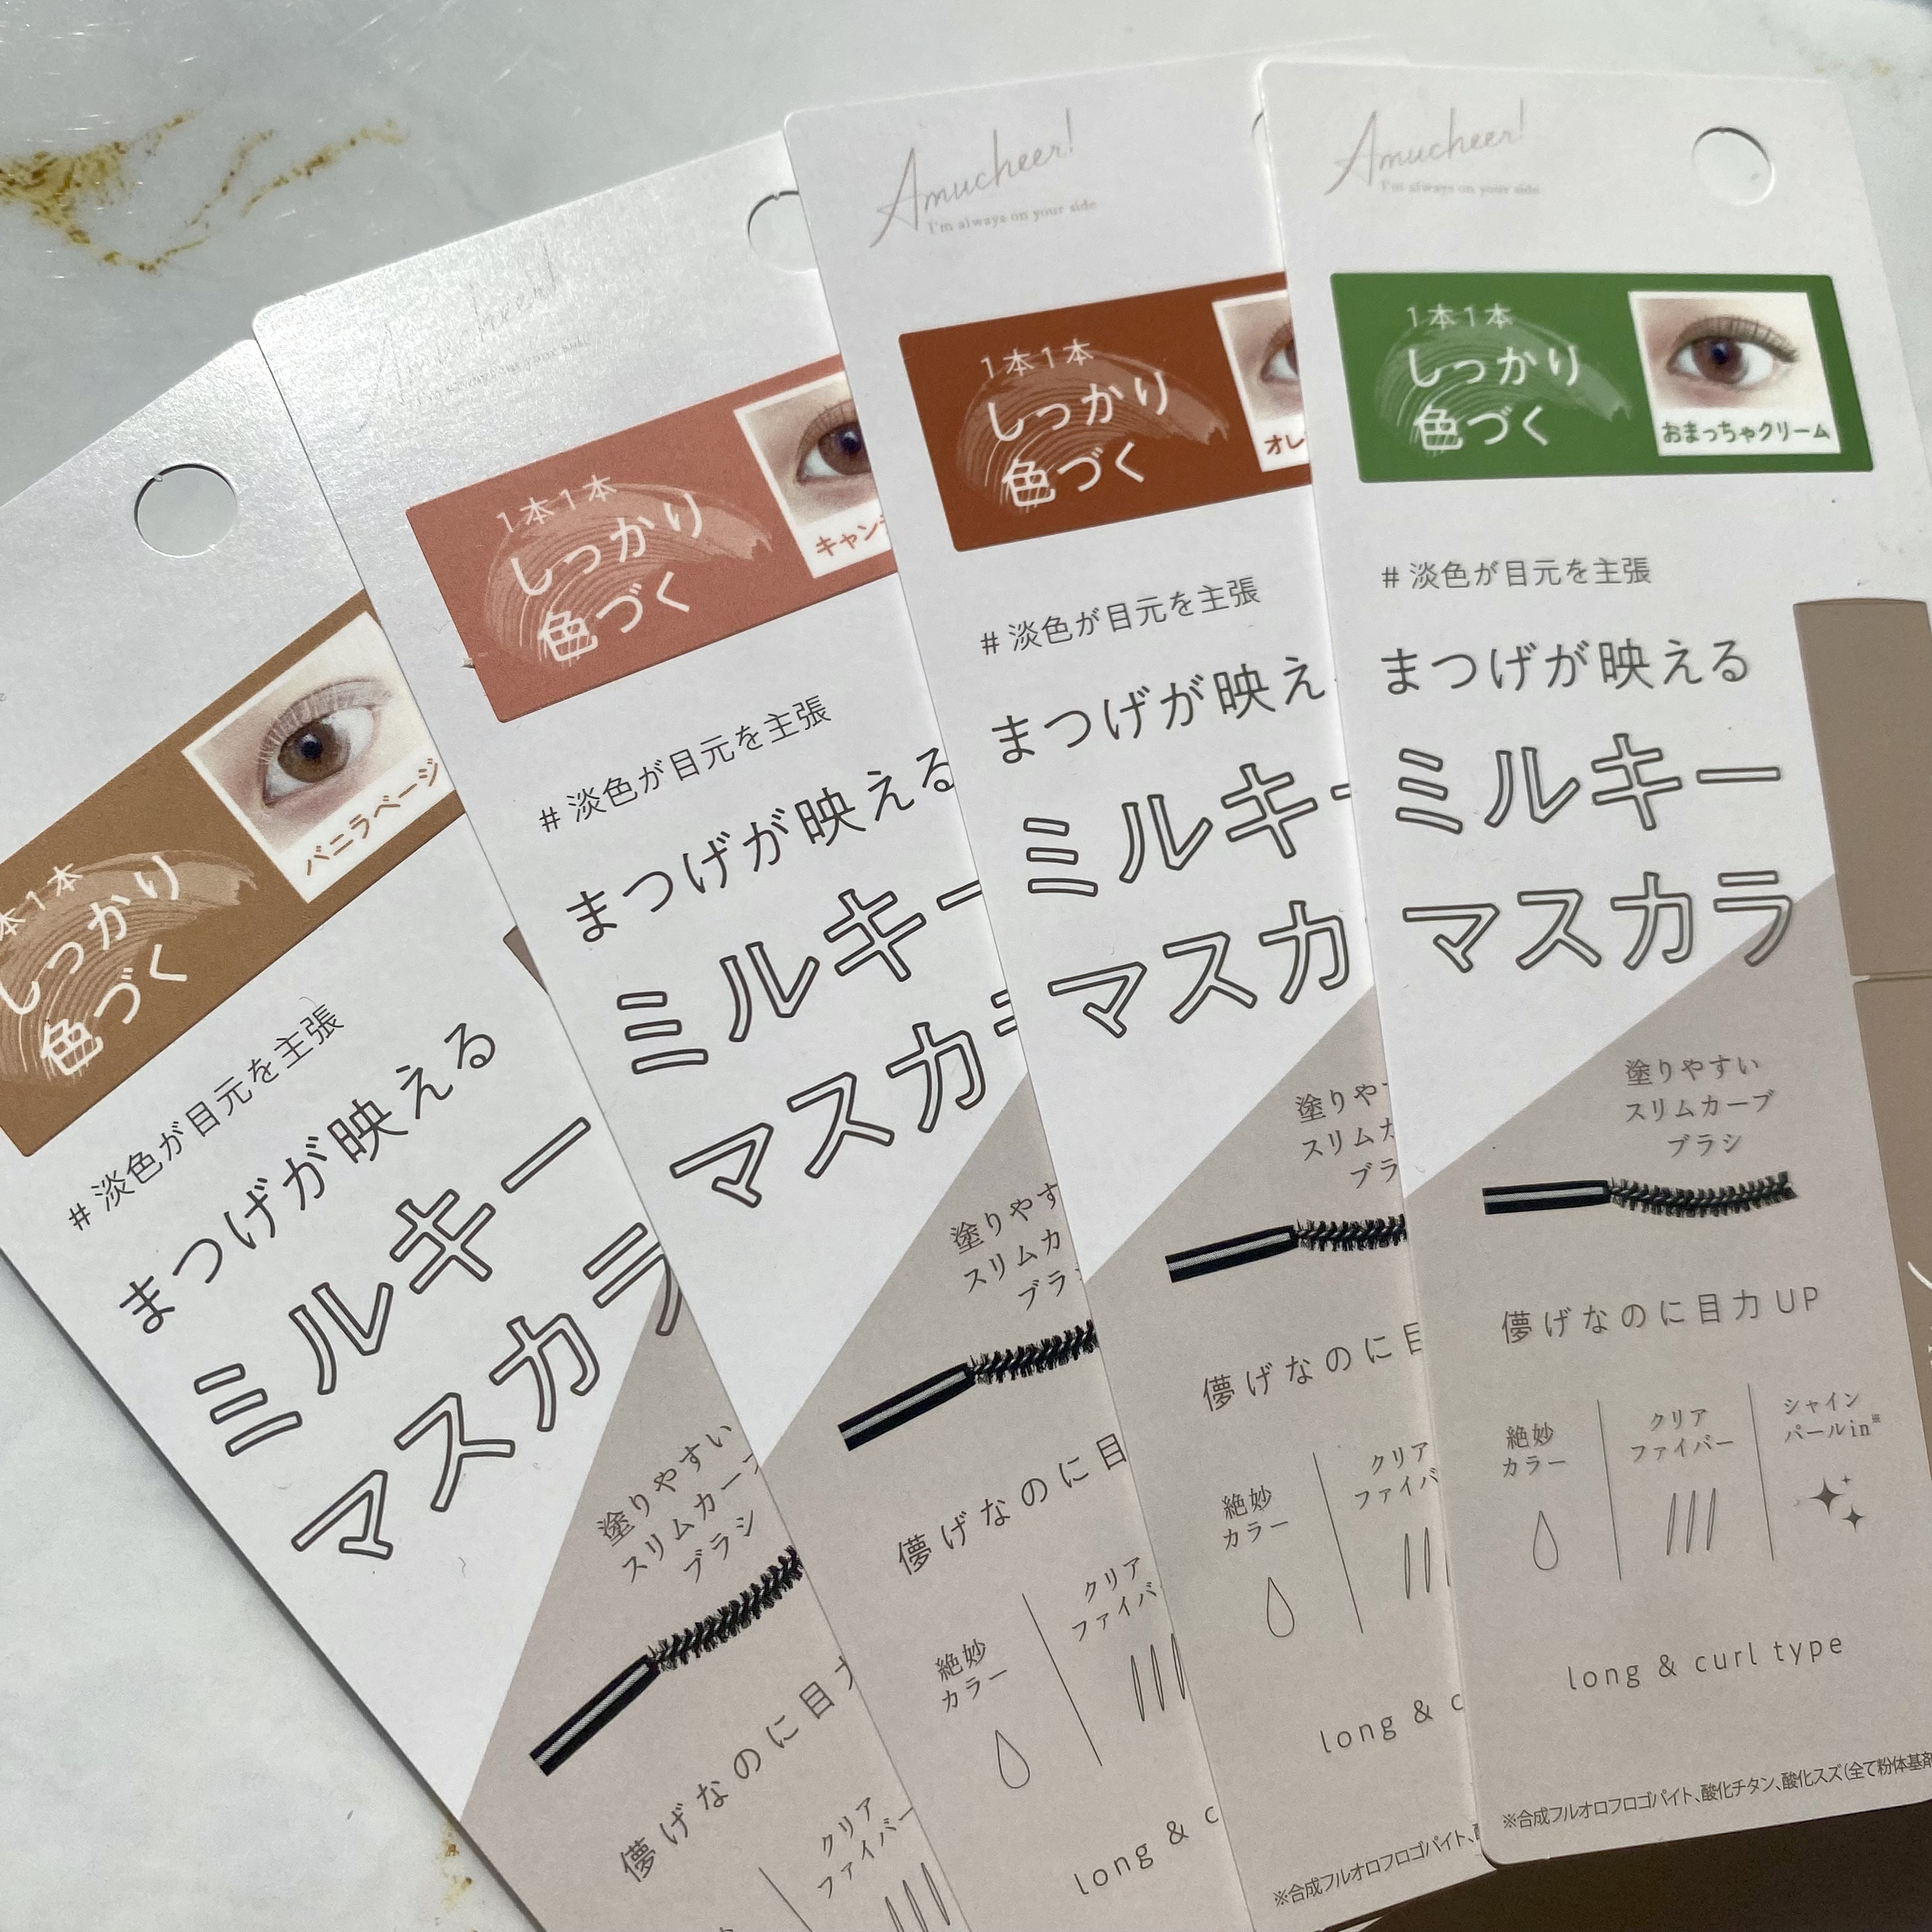 本1本
しっかり
色づく
バニラベージ
# 淡色が目元を主張
まつげが映える
ミルキー
マスカラ
塗りやすい
スリムカーブ
ブラシ
儚げなのに目力
クリア
ファイバー
1本1本
しっかり
色づく
キャン
# 淡色が目元を主張
まつげが映える
ミルキー
マスカラ
塗りやす
スリムカ
ブラ
儚げなのに目
絶妙
カラー
クリア
ファイバ
long & c
Amucheer!
I'm always on your side
1本1本
しっかり
色づく
オレ
# 淡色が目元を主張
まつげが映え
ミルキー
マスカ
塗りや
スリムカ
ブラ
儚げなのに目
絶妙
カラー
クリア
ファイバ
long & c
※合成フルオロフロゴパイト、
Amucheer!
I'm always on your side
1本1本
しっかり
色づく
おまっちゃクリーム
# 淡色が目元を主張
まつげが映える
ミルキー
マスカラ
塗りやすい
スリムカーブ
ブラシ
儚げなのに目力UP
絶妙
カラー
クリア
ファイバー
シャイン
パールin※
long & curl type
※合成フルオロフロゴパイト、酸化チタン、酸化スズ(全て粉体基剤